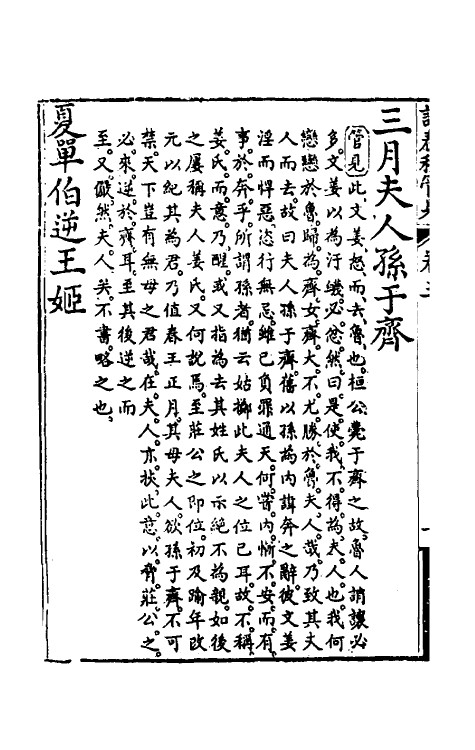 三月夫人孫于齊
管見此文姜怒而去魯也桓公薨于齊之故魯人誚讓必
多文姜以為汙衊必忿然曰是使我不得為夫人也我何
戀戀於魯歸為齊女齊大不尤勝於魯夫人哉乃致其夫
人而去故曰夫人孫于齊舊以孫為内諱奔之辭彼文姜
淫而悍惡恣行無忌雖已負罪通天何嘗内慚不安而有
事於奔乎所謂孫者猶云姑擲此夫人之位已耳故不稱
姜氏而意乃醒或又指為去其姓氏以示絕不為親如後
之屢稱夫人姜氏又何說焉至莊公之即位初及踰年改
元以紀其為君乃值春王正月其母夫人欲孫于齊不可
禁天下豈有無母之君哉在夫人亦挾此意以脅莊公之
必來逆於齊耳至其後逆之而
至又儼然夫人矣不書略之也
夏單伯逆王姬